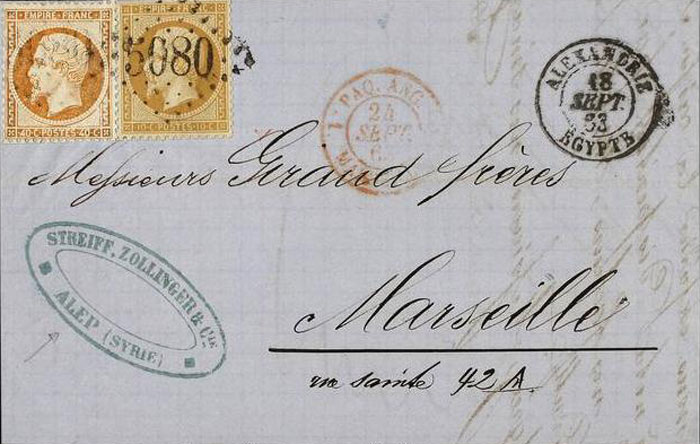 EMPIRE FRANC.
EMPIRE FRANC.
5080
40 C POSTES 40 C
10 C POSTES 10 C
PAQ. ANG.
24
SEPT.
6
ALEXANDRIE
18
SEPT.
63
EGYPTE
Messieurs Giraud frères
STREIFF, ZOLLINGER & Cie
ALEP (SYRIE)
Marseille
rue sainte 42A